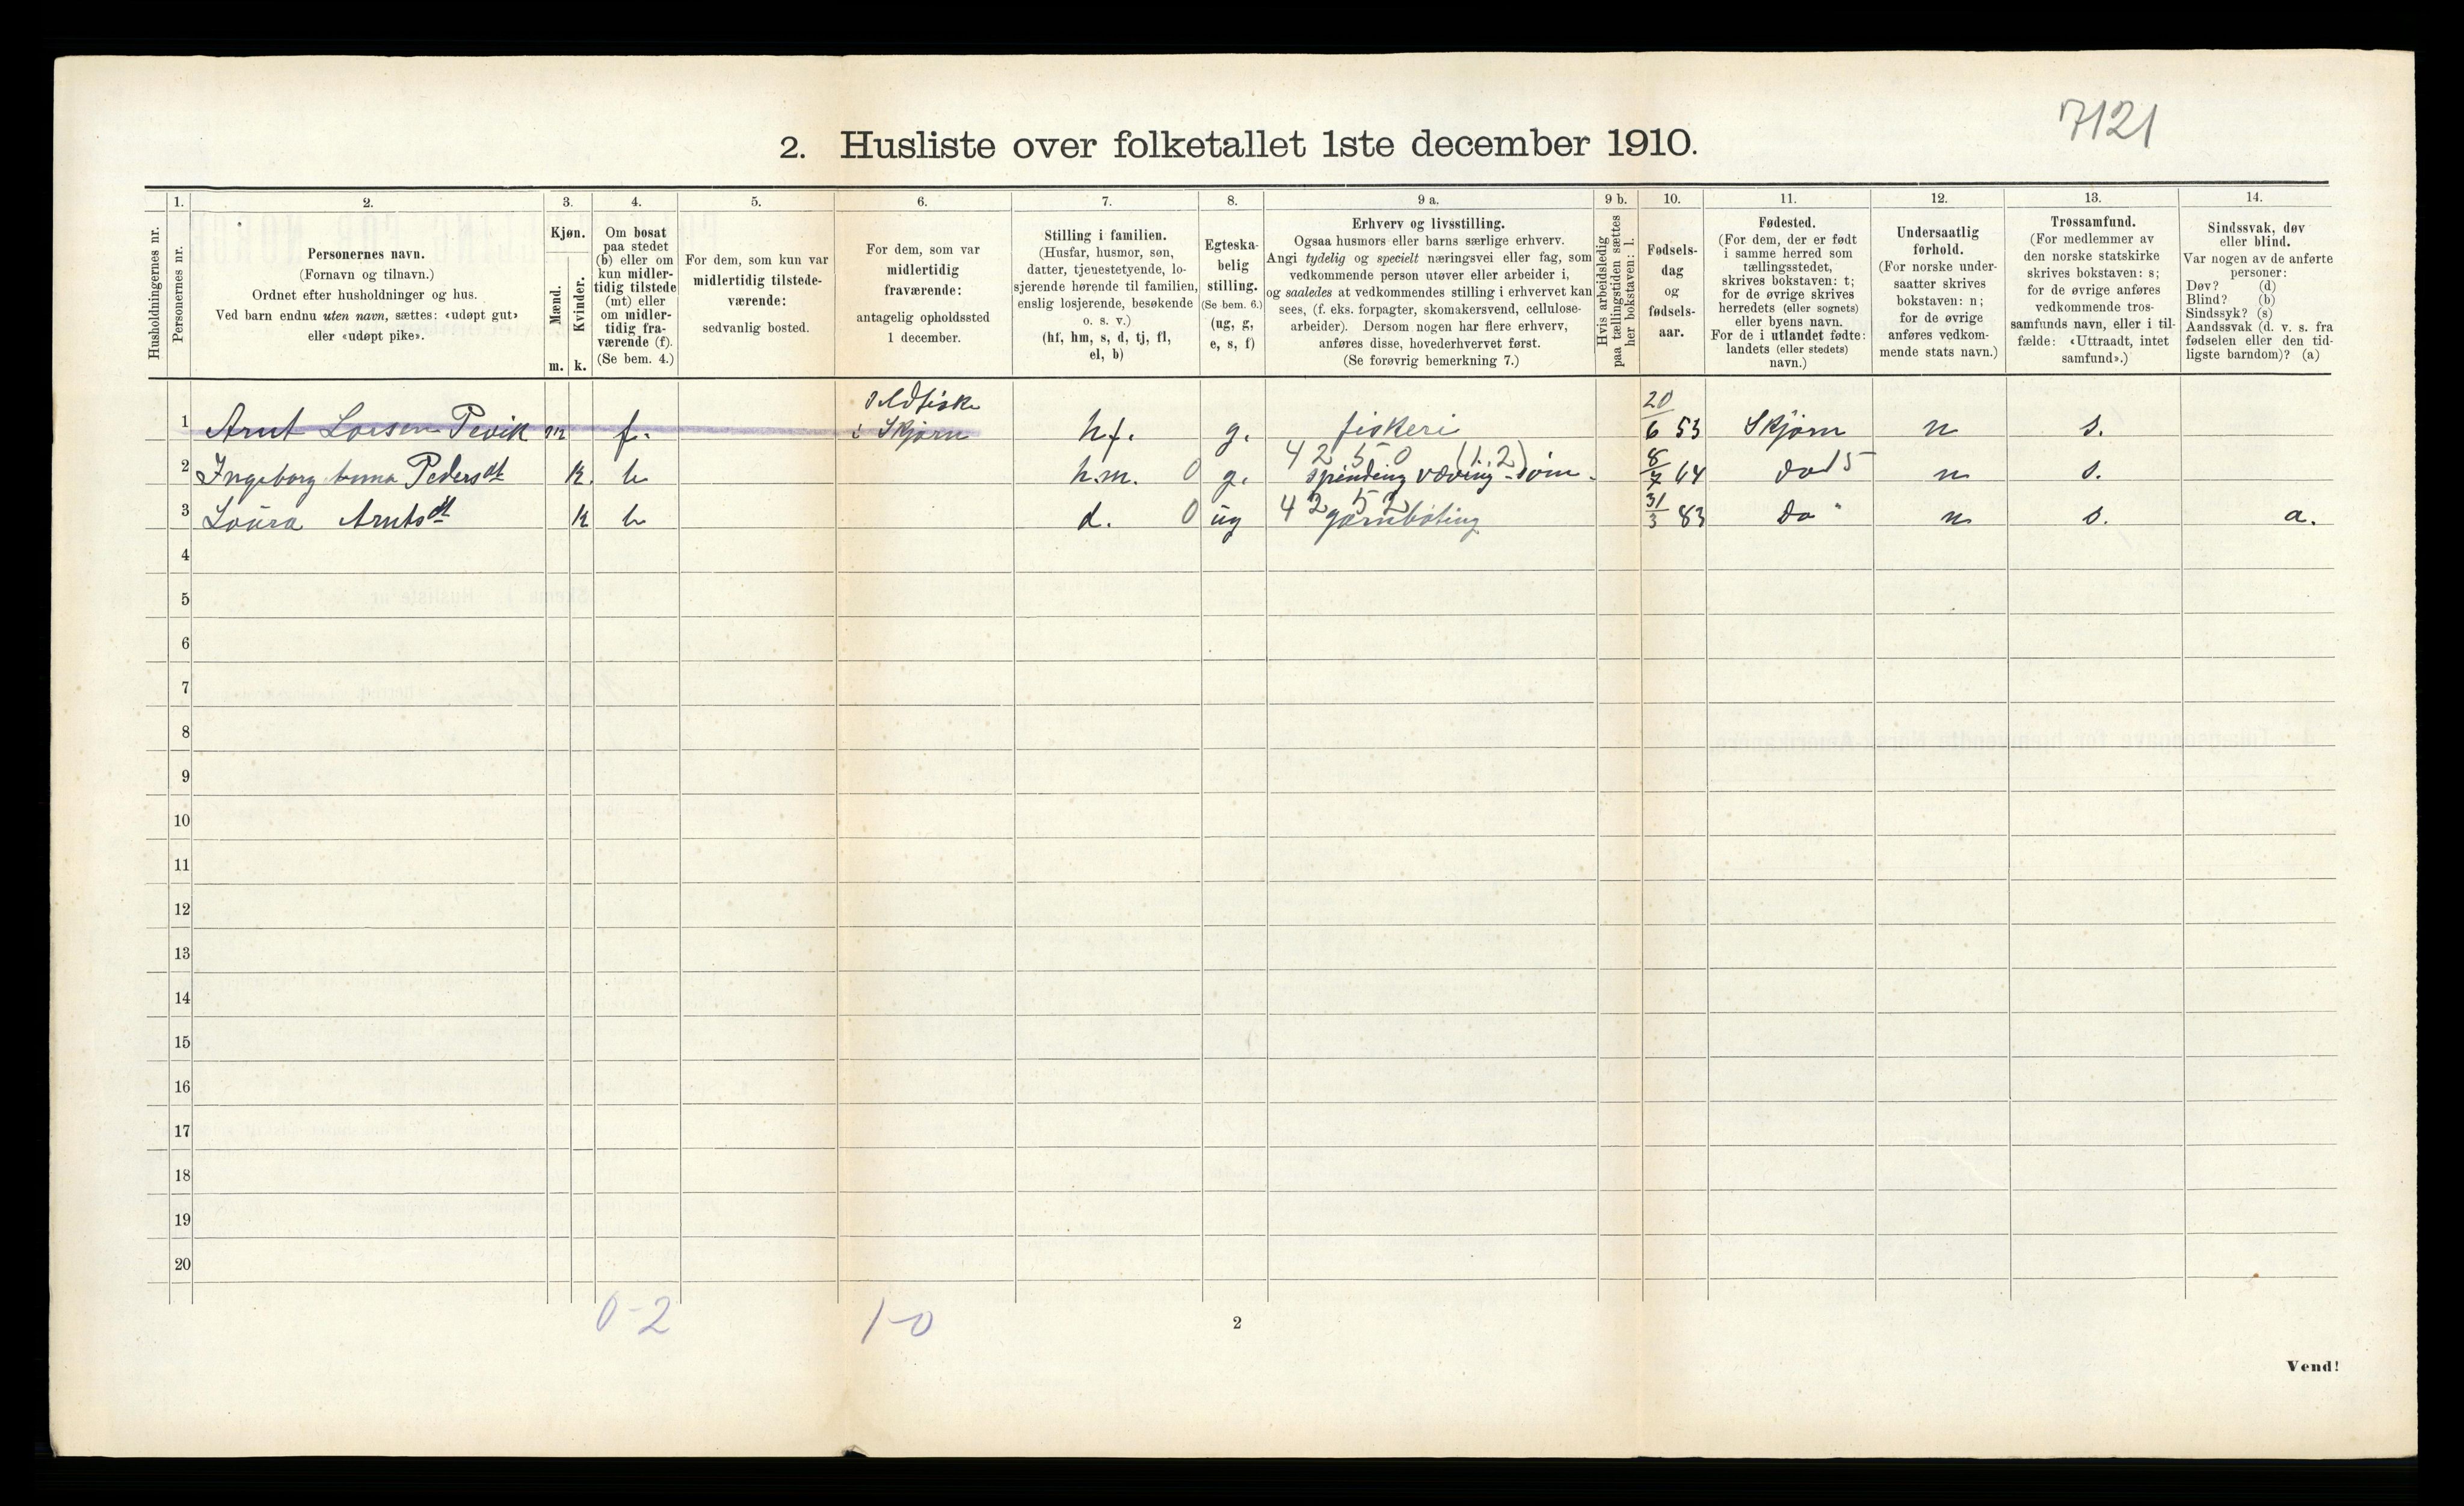 7121
2. Husliste over folketallet 1ste december 1910.
Husholdningernes nr.
1. Personernes nr.
2.
Personernes navn.
(Fornavn og tilnavn.)
Ordnet efter husholdninger og hus.
Ved barn endnu uten navn, sættes: «udøpt gut»
eller «udøpt pike».
3.
Kjøn.
Mænd.
Kvinder.
m. k.
4.
Om bosat
paa stedet
(b) eller om
kun midler-
tidig tilstede
(mt) eller
om midler-
tidig fra-
værende (f).
(Se bem. 4.)
5.
For dem, som kun var
midlertidig tilstede-
værende:
sedvanlig bosted.
6.
For dem, som var
midlertidig
fraværende:
antagelig opholdssted
1 december.
7.
Stilling i familien.
(Husfar, husmor, søn,
datter, tjenestetyende, lo-
sjerende hørende til familien,
enslig losjerende, besøkende
o. s. v.)
(hf, hm, s, d, tj, fl,
el, b)
8.
Egteska-
belig
stilling.
(Se bem. 6.)
(ug, g,
e, s, f)
9 a.
Erhverv og livsstilling.
Ogsaa husmors eller barns særlige erhverv.
Angi tydelig og specielt næringsvei eller fag, som
vedkommende person utøver eller arbeider i,
og saaledes at vedkommendes stilling i erhvervet kan
sees, (f. eks. forpagter, skomakersvend, cellulose-
arbeider). Dersom nogen har flere erhverv,
anføres disse, hovederhvervet først.
(Se forøvrig bemerkning 7.)
9 b.
Hvis arbeidsledig
paa tællingstiden sættes
her bokstaven: l.
10.
Fødsels-
dag
og
fødsels-
aar.
11.
Fødested.
(For dem, der er født
i samme herred som
tællingsstedet,
skrives bokstaven: t;
for de øvrige skrives
herredets (eller sognets)
eller byens navn.
For de i utlandet fødte:
landets (eller stedets)
navn.)
12.
Undersaatlig
forhold.
(For norske under-
saatter skrives
bokstaven: n;
for de øvrige
anføres vedkom-
mende stats navn.)
13.
Trossamfund.
(For medlemmer av
den norske statskirke
skrives bokstaven: s;
for de øvrige anføres
vedkommende tros-
samfunds navn, eller i til-
fælde: «Uttraadt, intet
samfund».)
14.
Sindssvak, døv
eller blind.
Var nogen av de anførte
personer:
Døv? (d)
Blind? (b)
Sindssyk? (s)
Aandssvak (d. v. s. fra
fødselen eller den tid-
ligste barndom)? (a)
sildfiske
1 Arnt Larsen Pevik m f. i Skjørn h.f. g. fiskeri 20/6 53 Skjørn n s.
4 2 5 0 (1.2)
2 Ingeborg Anna Pedersdt k. b h.m. 0 g. spinding væving-søm. 8/7 64 do 15 n s.
4 2 5 2
3 Laura Arntsdt k b d. 0 ug garnbøting 31/3 83 do " n s. a.
4
5
6
7
8
9
10
11
12
13
14
15
16
17
18
19
20
0-2 1-0
2
Vend!